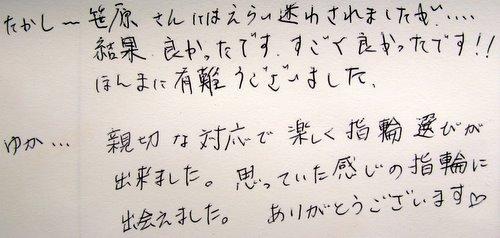 たかし〜 笹原さんにはえらい迷わされましたが‥‥
結果 良かったです。すごく良かったです!!
ほんまに有難うございました。
ゆか… 親切な対応で楽しく指輪選びが
出来ました。思っていた感じの指輪に
出会えました。ありがとうございます♡